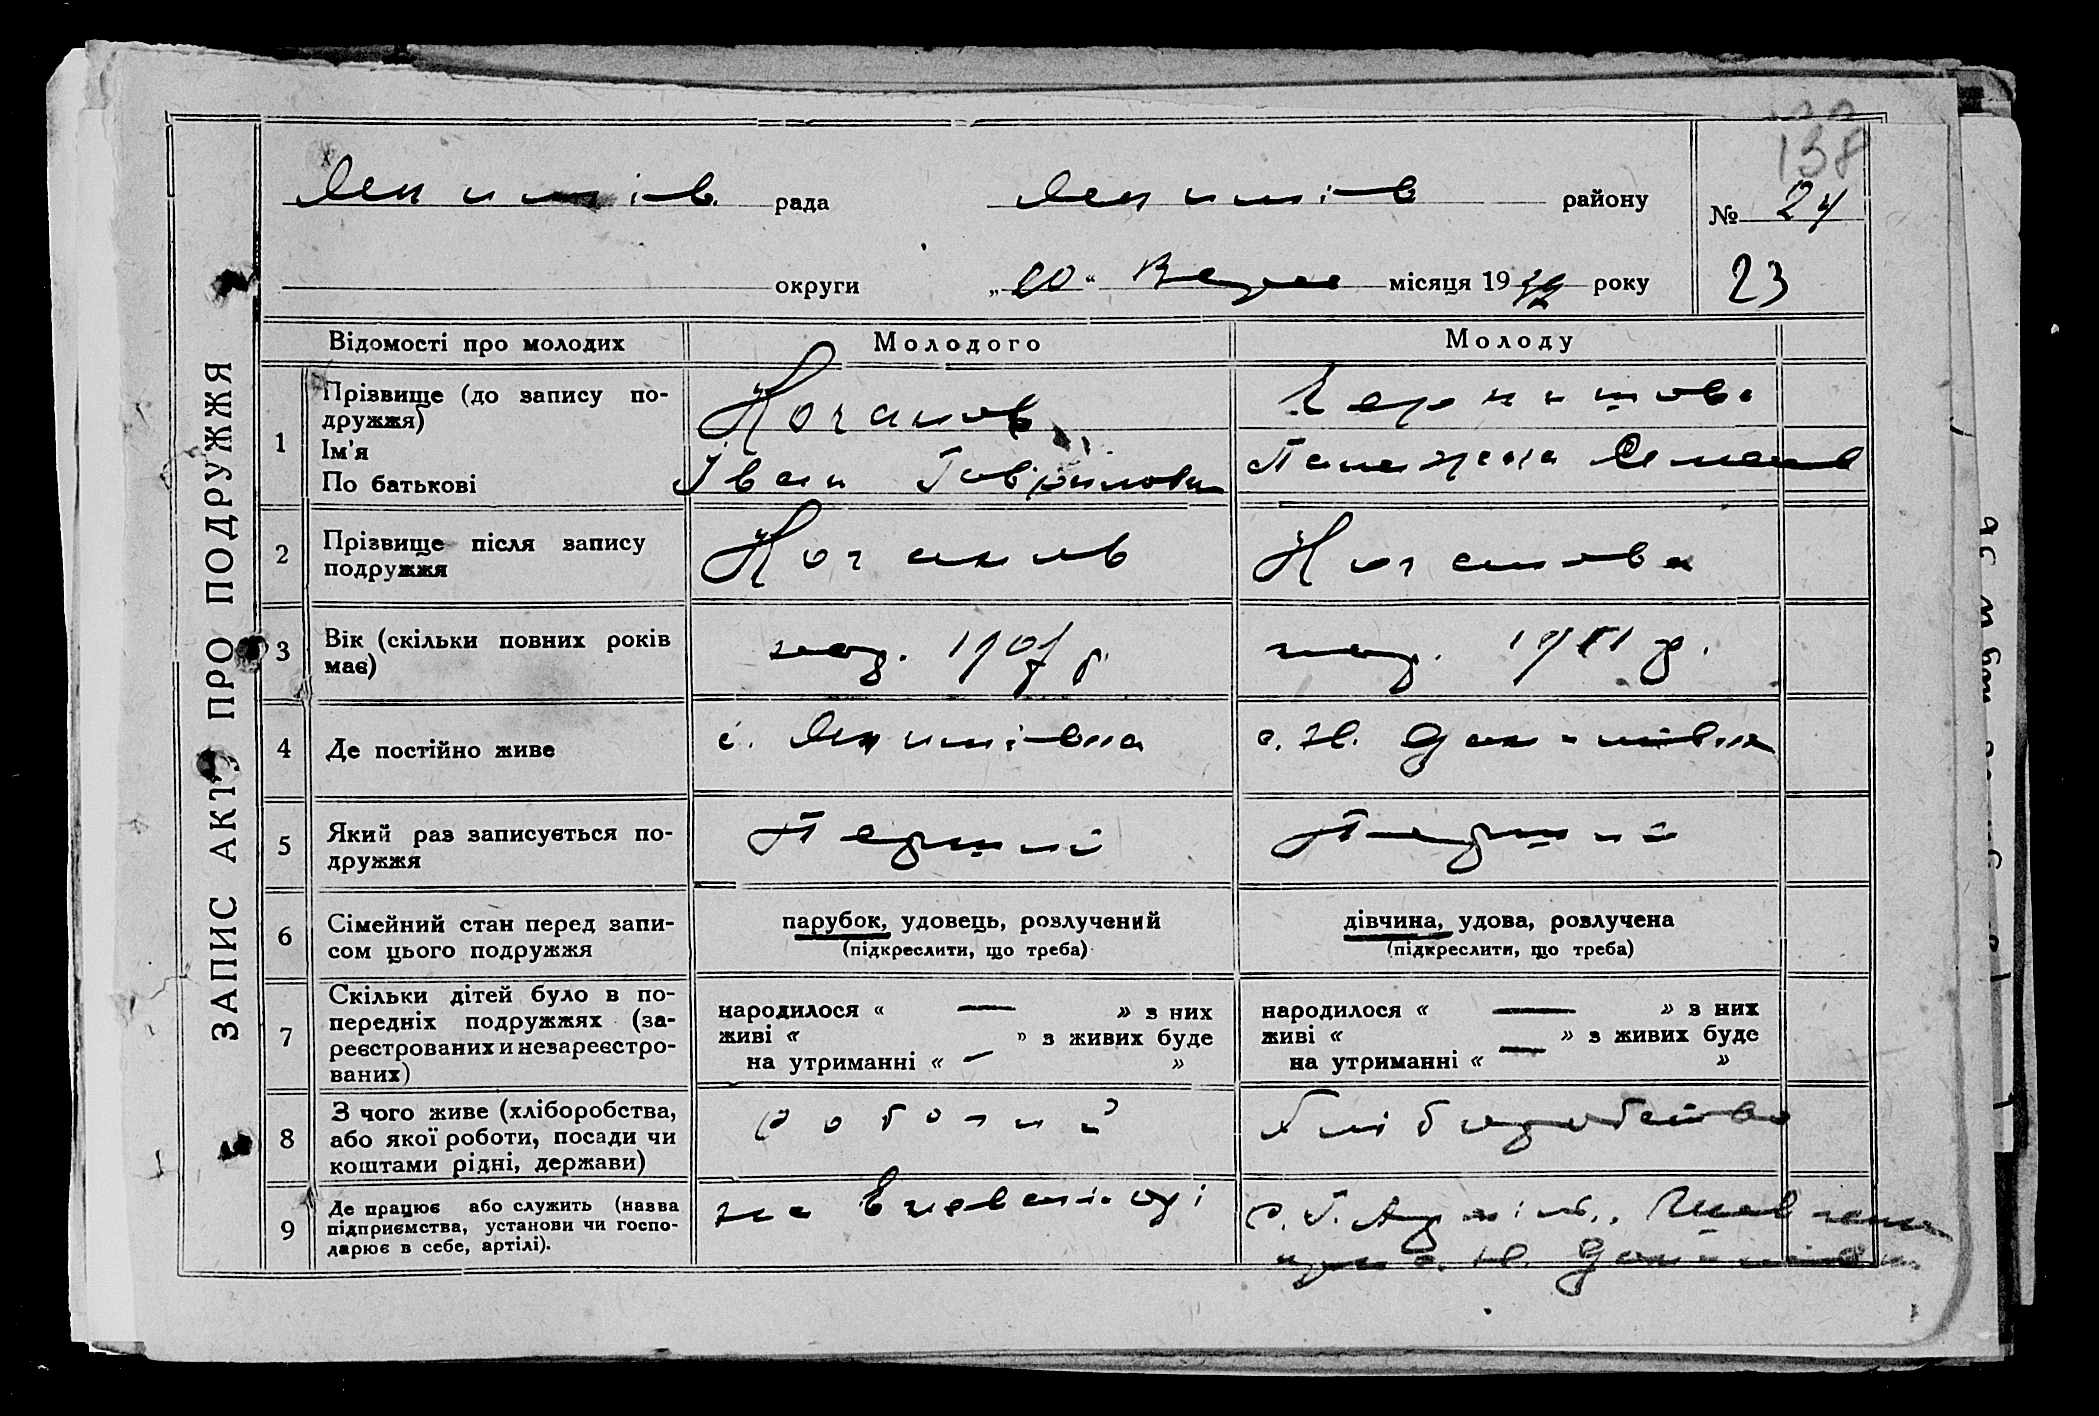 138
рада
району
№ 24
округи
„20“ місяця 19 року
23
ЗАПИС АКТУ ПРО ПОДРУЖЖЯ
Відомості про молодих
Молодого
Молоду
1
Прізвище (до запису по-
дружжя)
Ім'я
По батькові
Ночанов
Іван Гаврилович
2
Прізвище після запису
подружжя
Ночанов
Ночанова
3
Вік (скільки повних років
має)
1907 р.
1911 р.
4
Де постійно живе
с.
с. Н.
5
Який раз записується по-
дружжя
Перший
Перший
6
Сімейний стан перед запи-
сом цього подружжя
парубок, удовець, розлучений
(підкреслити, що треба)
дівчина, удова, розлучена
(підкреслити, що треба)
7
Скільки дітей було в по-
передніх подружжях (за-
реєстрованих и незареєстро-
ваних)
народилося « — » з них
живі « » з живих буде
на утриманні « — »
народилося « — » з них
живі « » з живих буде
на утриманні « — »
8
З чого живе (хліборобства,
або якої роботи, посади чи
коштами рідні, держави)
робочий
Хліборобство
9
Де працює або служить (назва
підприємства, установи чи госпо-
дарює в себе, артілі).
на
с. Г. Артіль
с. Н.